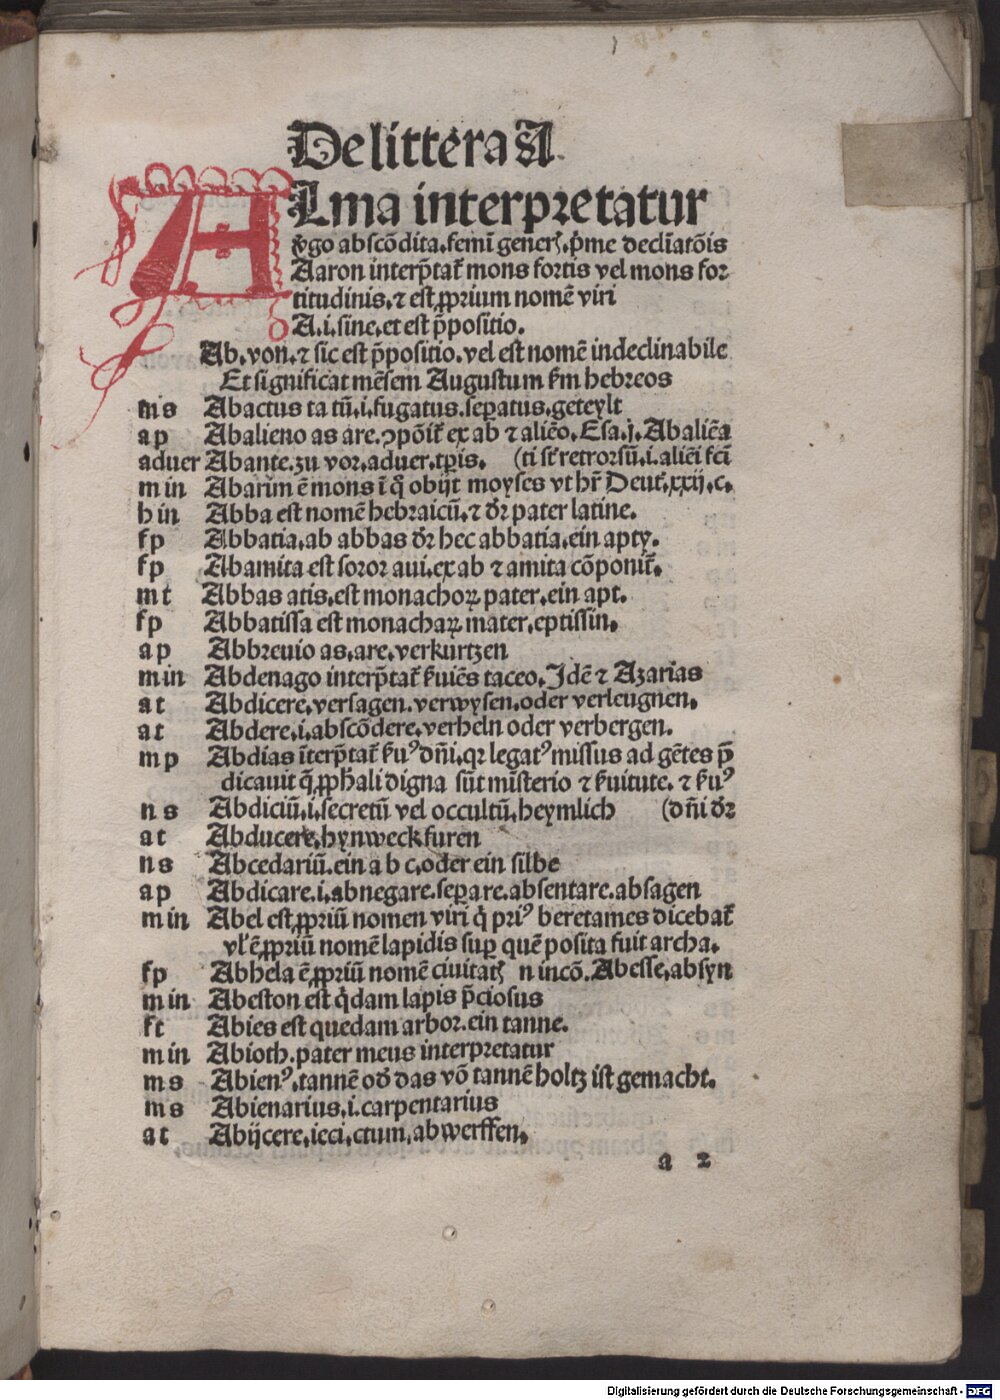 De littera A
Alma interpretatur
v̾go abscõdita. femĩ generꝭ. p̃me decl̃iatõis
Aaron interp̃tat᷑ mons fortis vel mons for
titudinis. ⁊ est ꝓprium nomẽ viri
A. i. sine. et est p̃positio.
Ab. von. ⁊ sic est p̃positio. vel est nomẽ indeclinabile
Et significat mẽsem Augustum ẜm hebreos
m s Abactus ta tũ. i. fugatus. seꝑatus. geteylt
a p Abalieno as are. ꝯpõit᷑ ex ab ⁊ aliẽo. Esa. j. Abaliẽa
aduer Abante. zu vor. aduer. tꝑis. (ti st᷑ retrorsũ. i. aliẽi fc̃i
m in Abarim ẽ mons ĩ q̃ obijt moyses vt hr̃ Deut᷑. xxij. c.
h in Abba est nomẽ hebraicũ. ⁊ dr̃ pater latine.
f p Abbatia. ab abbas dr̃ hec abbatia. ein apty.
f p Abamita est soror aui. ex ab ⁊ amita cõponit᷑.
m t Abbas atis. est monachoꝝ pater. ein apt.
f p Abbatissa est monachaꝝ mater. eptissin.
a p Abbreuio as. are. verkurtzen
m in Abdenago interp̃tat᷑ ẜuiẽs taceo. Jdẽ ⁊ Azarias
a t Abdicere. versagen. verwysen. oder verleugnen.
a t Abdere. i. abscõdere. verheln oder verbergen.
m p Abdias ĩterp̃tat᷑ ẜuꝰ dñi. qr legatꝰ missus ad gẽtes p̃
dicauit q̃ ꝓphali digna sũt mĩsterio ⁊ ẜuitute. ⁊ ẜuꝰ
n s Abdiciũ. i. secretũ vel occultũ. heymlich (dñi dr̃
a t Abducere. hynweck furen
n s Abcedariũ. ein a b c. oder ein silbe
a p Abdicare. i. abnegare. seꝑare. absentare. absagen
m in Abel est ꝓpriũ nomen viri q̃ priꝰ beretames dicebat᷑
vl̾ ẽ ꝓpriũ nomẽ lapidis suꝑ quẽ posita fuit archa.
f p Abhela ẽ ꝓpriũ nomẽ ciuitatꝭ n incõ. Abesse. absyn
m in Abeston est q̃dam lapis p̃ciosus
f t Abies est quedam arbor. ein tanne.
m in Abioth. pater meus interpretatur
m s Abienꝰ. tannẽ od̾ das võ tannẽ holtz ist gemacht.
m s Abienarius. i. carpentarius
a t Abijcere. ieci. ctum. ab werffen.
a 2
Digitalisierung gefördert durch die Deutsche Forschungsgemeinschaft - DFG